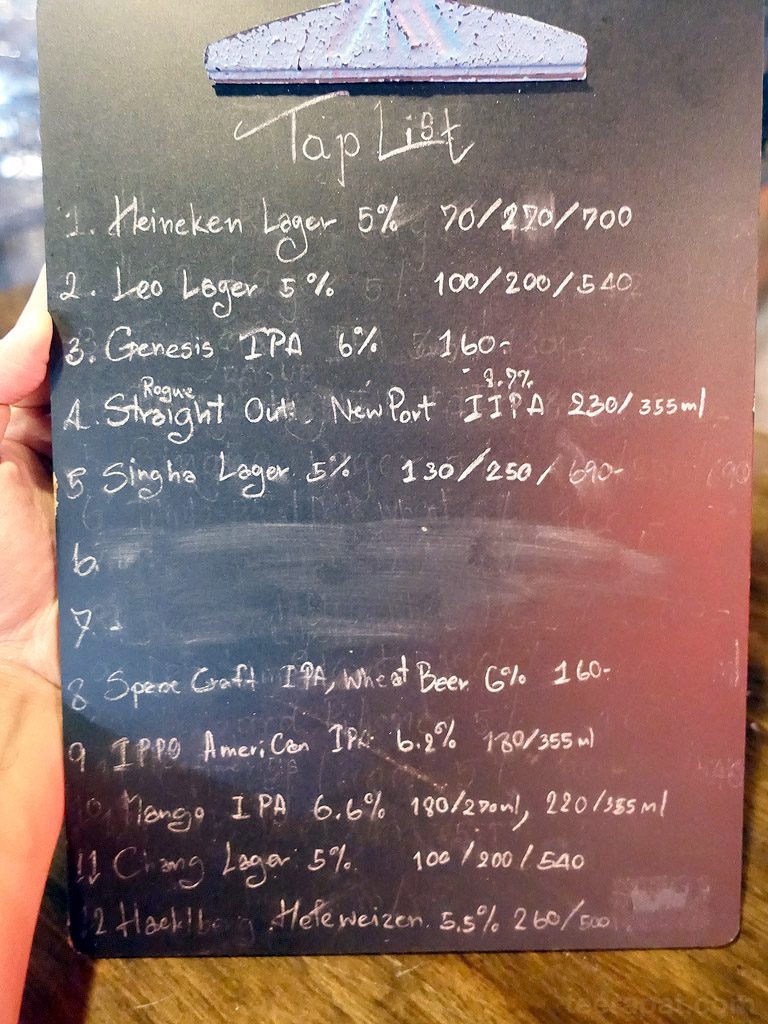 Tap List
1. Heineken Lager 5% 70/270/700
2. Leo Lager 5% 100/200/540
3. Genesis IPA 6% 160-
8.7%
Rogue
4. Straight Out NewPort IIPA 230/355ml
5 Singha Lager 5% 130/250/690-
6.
7.
8 Craft IPA, Wheat Beer 6% 160-
9 IPPO American IPA 6.2% 180/355ml
10. Mango IPA 6.6% 180/270ml, 220/355ml
11 Chang Lager 5% 100/200/540
12 Hefeweizen 5.5% 260/500
teerapat.com